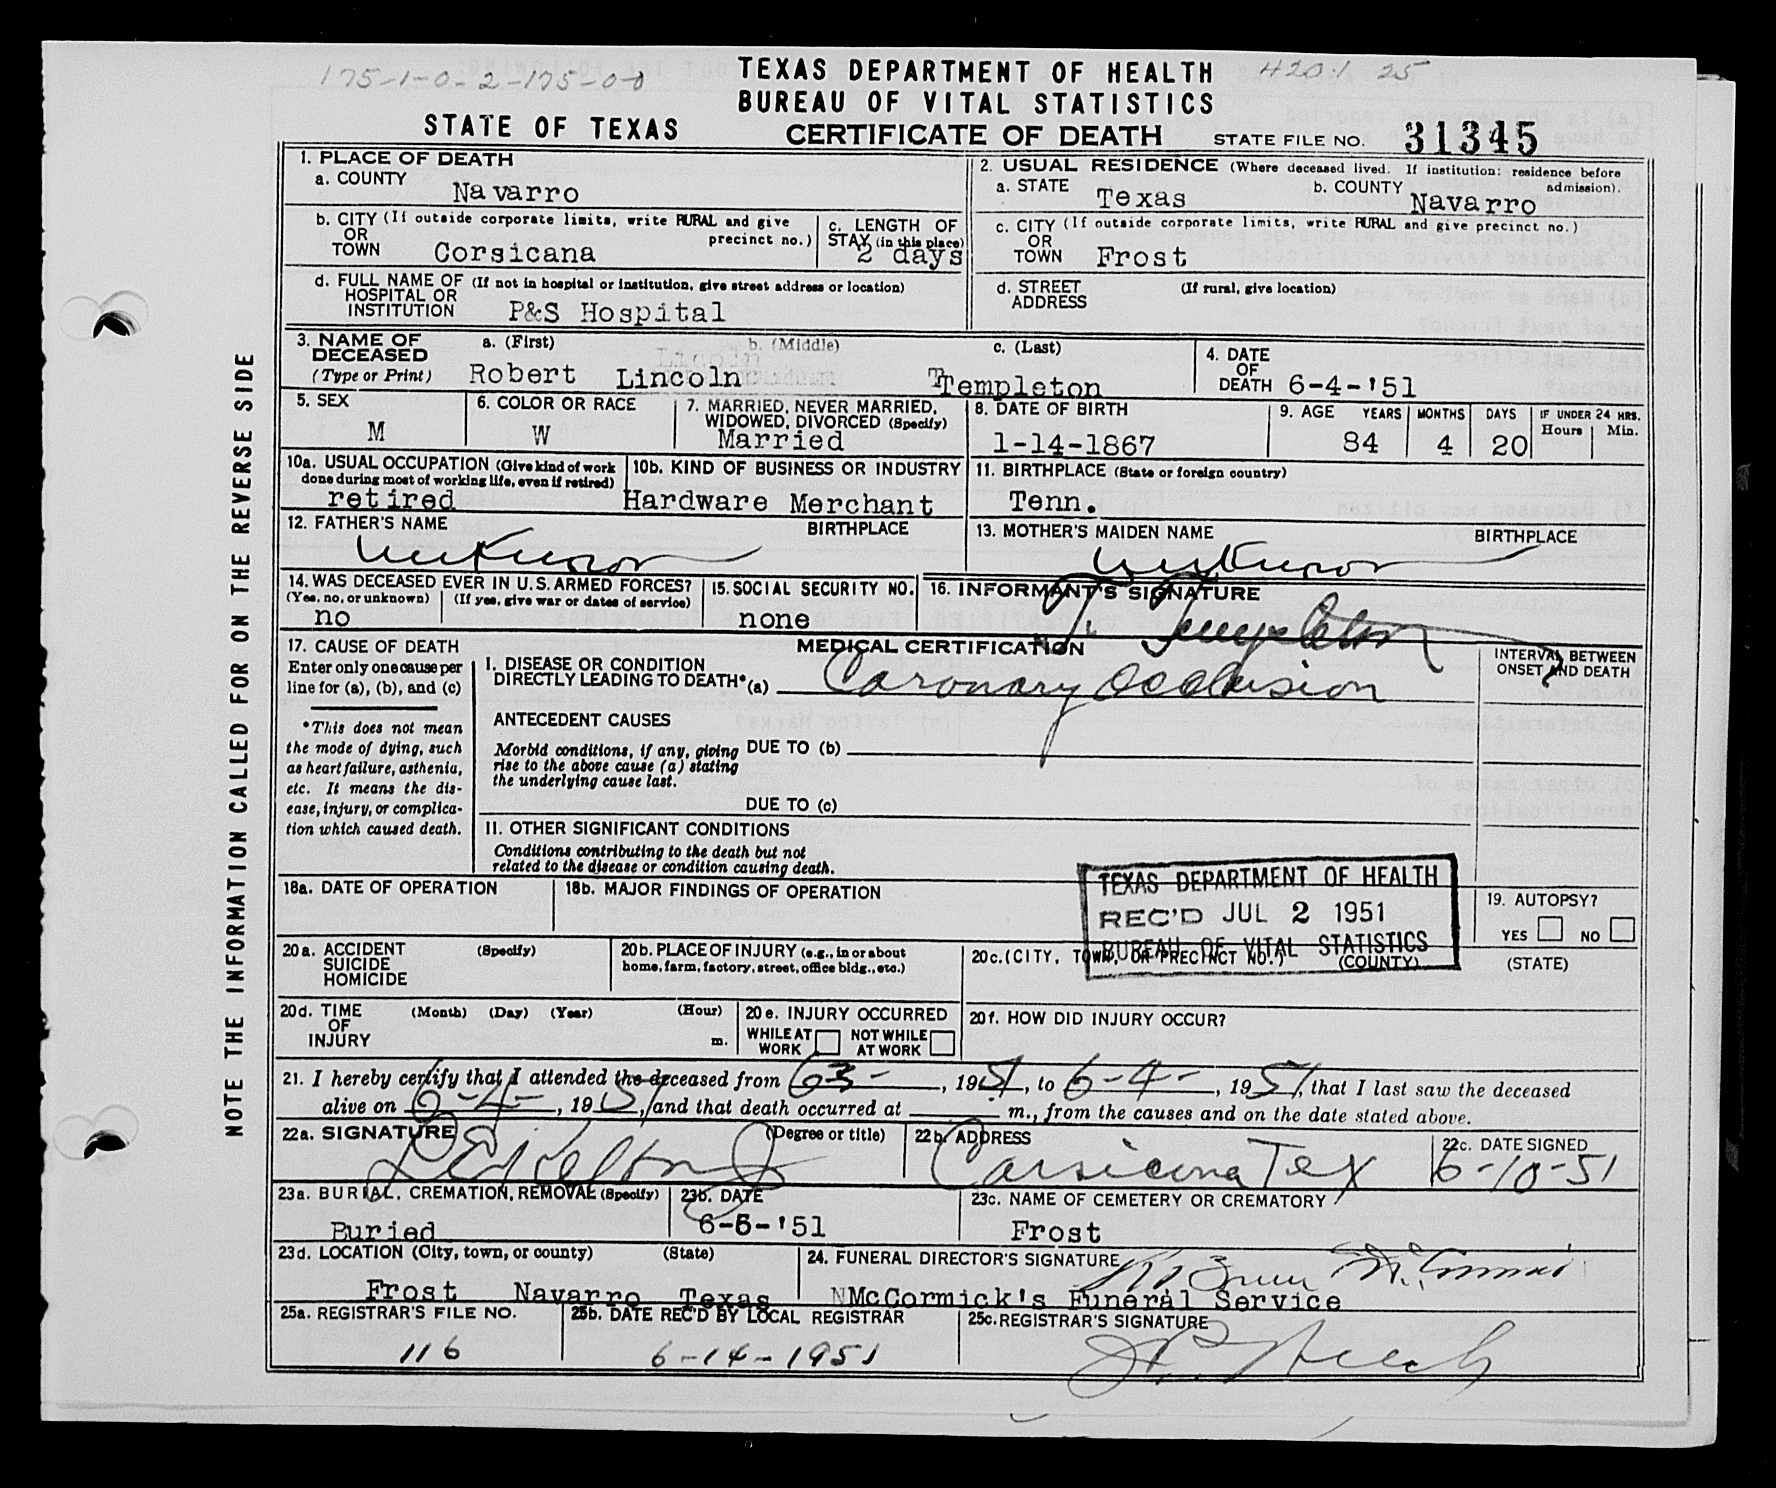 175-1-0-2-175-0-0
TEXAS DEPARTMENT OF HEALTH
420.1 25
BUREAU OF VITAL STATISTICS
STATE OF TEXAS
CERTIFICATE OF DEATH
STATE FILE NO. 31345
1. PLACE OF DEATH
a. COUNTY
Navarro
2. USUAL RESIDENCE (Where deceased lived. If institution: residence before admission).
a. STATE Texas
b. COUNTY Navarro
b. CITY (If outside corporate limits, write RURAL and give precinct no.)
OR
TOWN Corsicana
c. LENGTH OF
STAY (in this place)
2 days
c. CITY (If outside corporate limits, write RURAL and give precinct no.)
OR
TOWN Frost
d. FULL NAME OF (If not in hospital or institution, give street address or location)
HOSPITAL OR
INSTITUTION P&S Hospital
d. STREET (If rural, give location)
ADDRESS
3. NAME OF
DECEASED
(Type or Print)
a. (First) b. (Middle) c. (Last)
Lincoln
Robert Lincoln Templeton
4. DATE
OF
DEATH 6-4-'51
5. SEX
M
6. COLOR OR RACE
W
7. MARRIED, NEVER MARRIED,
WIDOWED, DIVORCED (Specify)
Married
8. DATE OF BIRTH
1-14-1867
9. AGE YEARS MONTHS DAYS IF UNDER 24 HRS.
Hours Min.
84 4 20
10a. USUAL OCCUPATION (Give kind of work
done during most of working life, even if retired)
retired
10b. KIND OF BUSINESS OR INDUSTRY
Hardware Merchant
11. BIRTHPLACE (State or foreign country)
Tenn.
12. FATHER'S NAME BIRTHPLACE
unknown
13. MOTHER'S MAIDEN NAME BIRTHPLACE
unknown
14. WAS DECEASED EVER IN U.S. ARMED FORCES?
(Yes, no, or unknown) (If yes, give war or dates of service)
no
15. SOCIAL SECURITY NO.
none
16. INFORMANT'S SIGNATURE
T. Templeton
17. CAUSE OF DEATH
Enter only one cause per
line for (a), (b), and (c)
*This does not mean
the mode of dying, such
as heart failure, asthenia,
etc. It means the dis-
ease, injury, or complica-
tion which caused death.
MEDICAL CERTIFICATION
INTERVAL BETWEEN
ONSET AND DEATH
I. DISEASE OR CONDITION
DIRECTLY LEADING TO DEATH* (a) Coronary Occlusion
ANTECEDENT CAUSES
Morbid conditions, if any, giving
rise to the above cause (a) stating
the underlying cause last.
DUE TO (b)
DUE TO (c)
II. OTHER SIGNIFICANT CONDITIONS
Conditions contributing to the death but not
related to the disease or condition causing death.
18a. DATE OF OPERATION
18b. MAJOR FINDINGS OF OPERATION
TEXAS DEPARTMENT OF HEALTH
REC'D JUL 2 1951
BUREAU OF VITAL STATISTICS
19. AUTOPSY?
YES NO
20a. ACCIDENT (Specify)
SUICIDE
HOMICIDE
20b. PLACE OF INJURY (e.g., in or about
home, farm, factory, street, office bldg., etc.)
20c. (CITY, TOWN, OR PRECINCT NO.) (COUNTY) (STATE)
20d. TIME (Month) (Day) (Year) (Hour)
OF
INJURY m.
20e. INJURY OCCURRED
WHILE AT WORK NOT WHILE AT WORK
20f. HOW DID INJURY OCCUR?
21. I hereby certify that I attended the deceased from 6-3-, 1951, to 6-4-, 1951, that I last saw the deceased
alive on 6-4-, 1951, and that death occurred at m., from the causes and on the date stated above.
22a. SIGNATURE (Degree or title)
22b. ADDRESS
Corsicana Tex
22c. DATE SIGNED
6-10-51
23a. BURIAL, CREMATION, REMOVAL (Specify)
Buried
23b. DATE
6-6-'51
23c. NAME OF CEMETERY OR CREMATORY
Frost
23d. LOCATION (City, town, or county) (State)
Frost Navarro Texas
24. FUNERAL DIRECTOR'S SIGNATURE
McCormick's Funeral Service
25a. REGISTRAR'S FILE NO.
116
25b. DATE REC'D BY LOCAL REGISTRAR
6-14-1951
25c. REGISTRAR'S SIGNATURE
NOTE THE INFORMATION CALLED FOR ON THE REVERSE SIDE